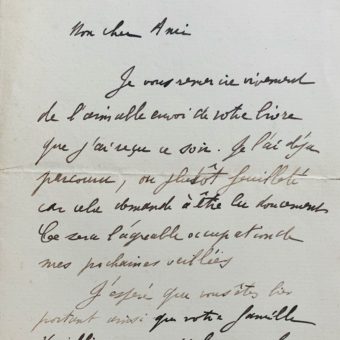 Mon cher Ami
Je vous remercie vivement
de l'aimable envoi de votre livre
que j'ai reçu ce soir. Je l'ai déja
parcouru, ou plutôt feuilleté
car cela demande à être lu doucement
Ce sera l'agréable occupation de
mes prochaines veillées
J'espère que vous êtes bien
portant ainsi que votre famille